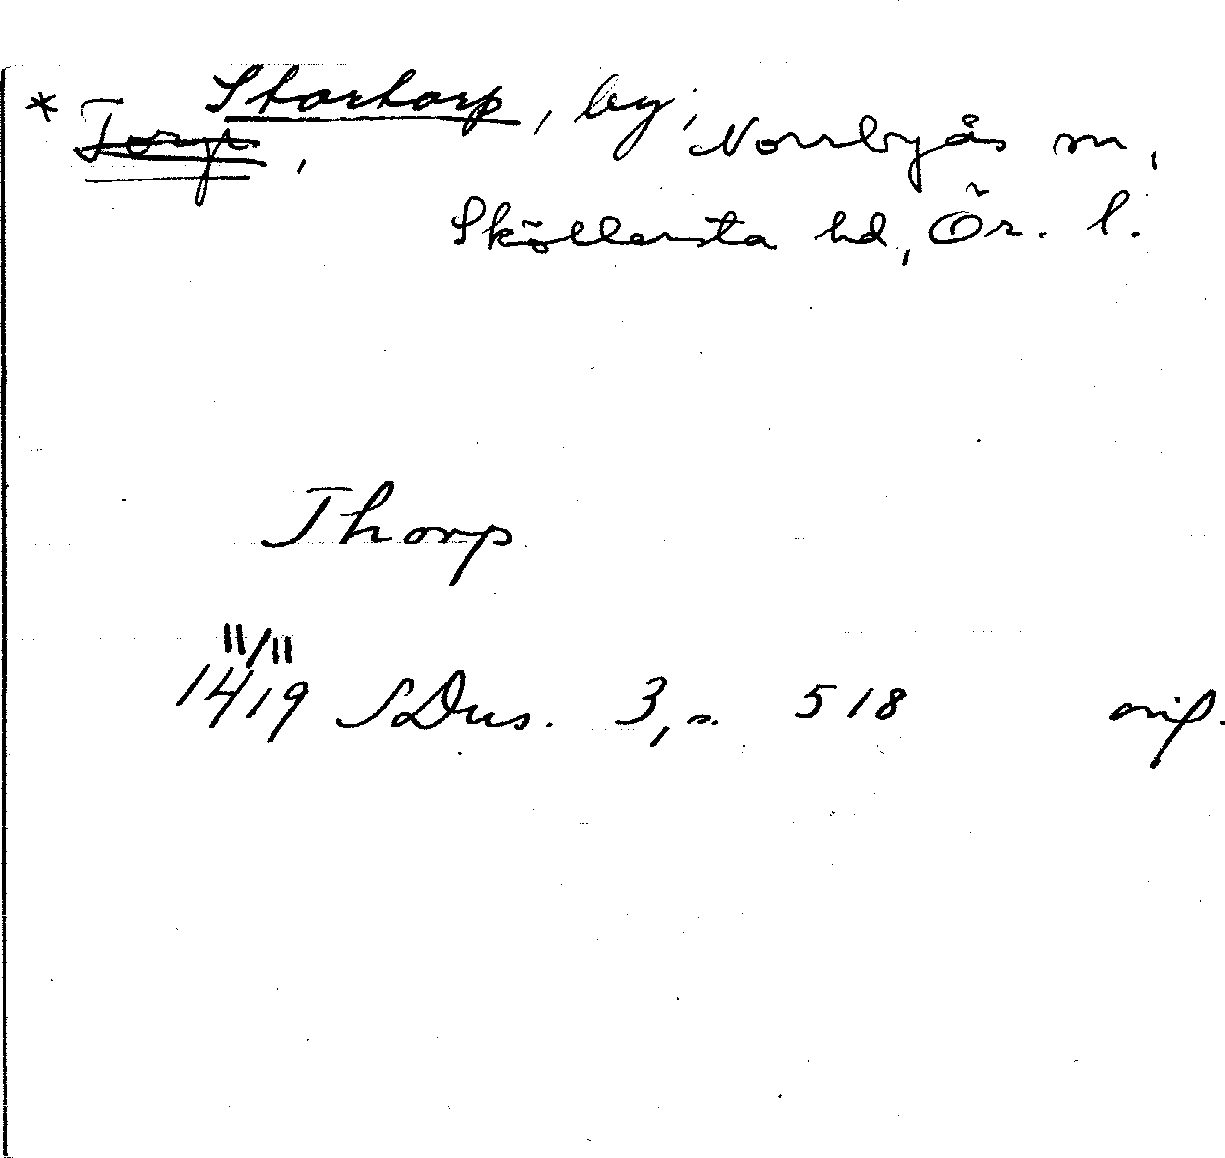 * Stortorp, by,
Torp, Norrbyås sn,
Sköllersta hd, Ör. l.
Thorp
11/11
1419 SDns. 3, s. 518 orig.